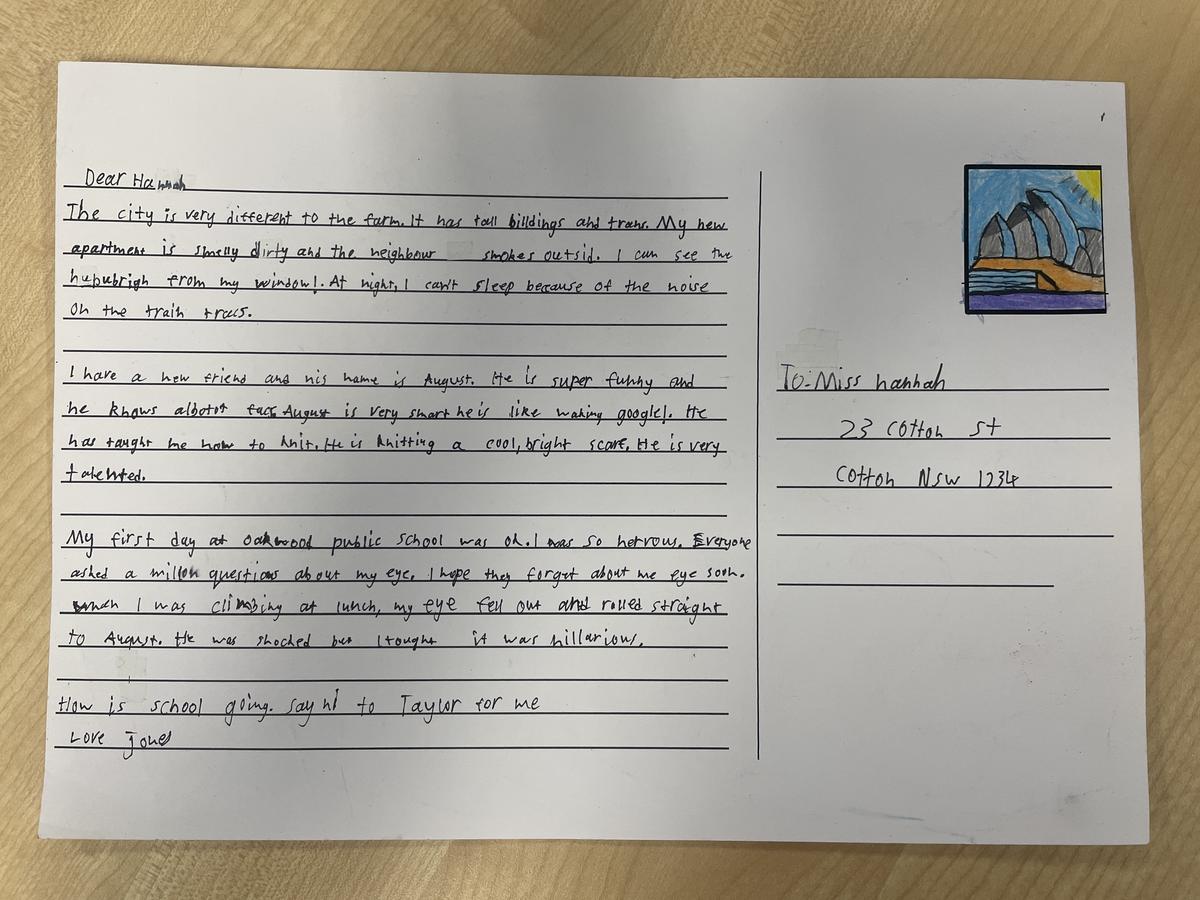 Dear Hannah
The city is very different to the farm. It has tall billdings and trans. My new
apartment is smelly dirty and the neighbour smokes outsid. I can see the
hububrigh from my window!. At night, I can't sleep because of the noise
on the train tracs.
I have a new friend and his name is August. He is super funny and
he knows albotof fact August is very smart he is like waking google!. He
has taught me how to knit. He is knitting a cool, bright scarf. He is very
talented.
My first day at oakwood public school was ok. I was so nervous. Everyone
asked a millon questions about my eye. I hope they forget about me eye soon.
when I was climbing at lunch, my eye fell out and rolled straight
to August. He was shocked but I tought it was hillarious.
How is school going. say hi to Taylor for me
Love
To-Miss hannah
23 cotton st
cotton NSW 1234